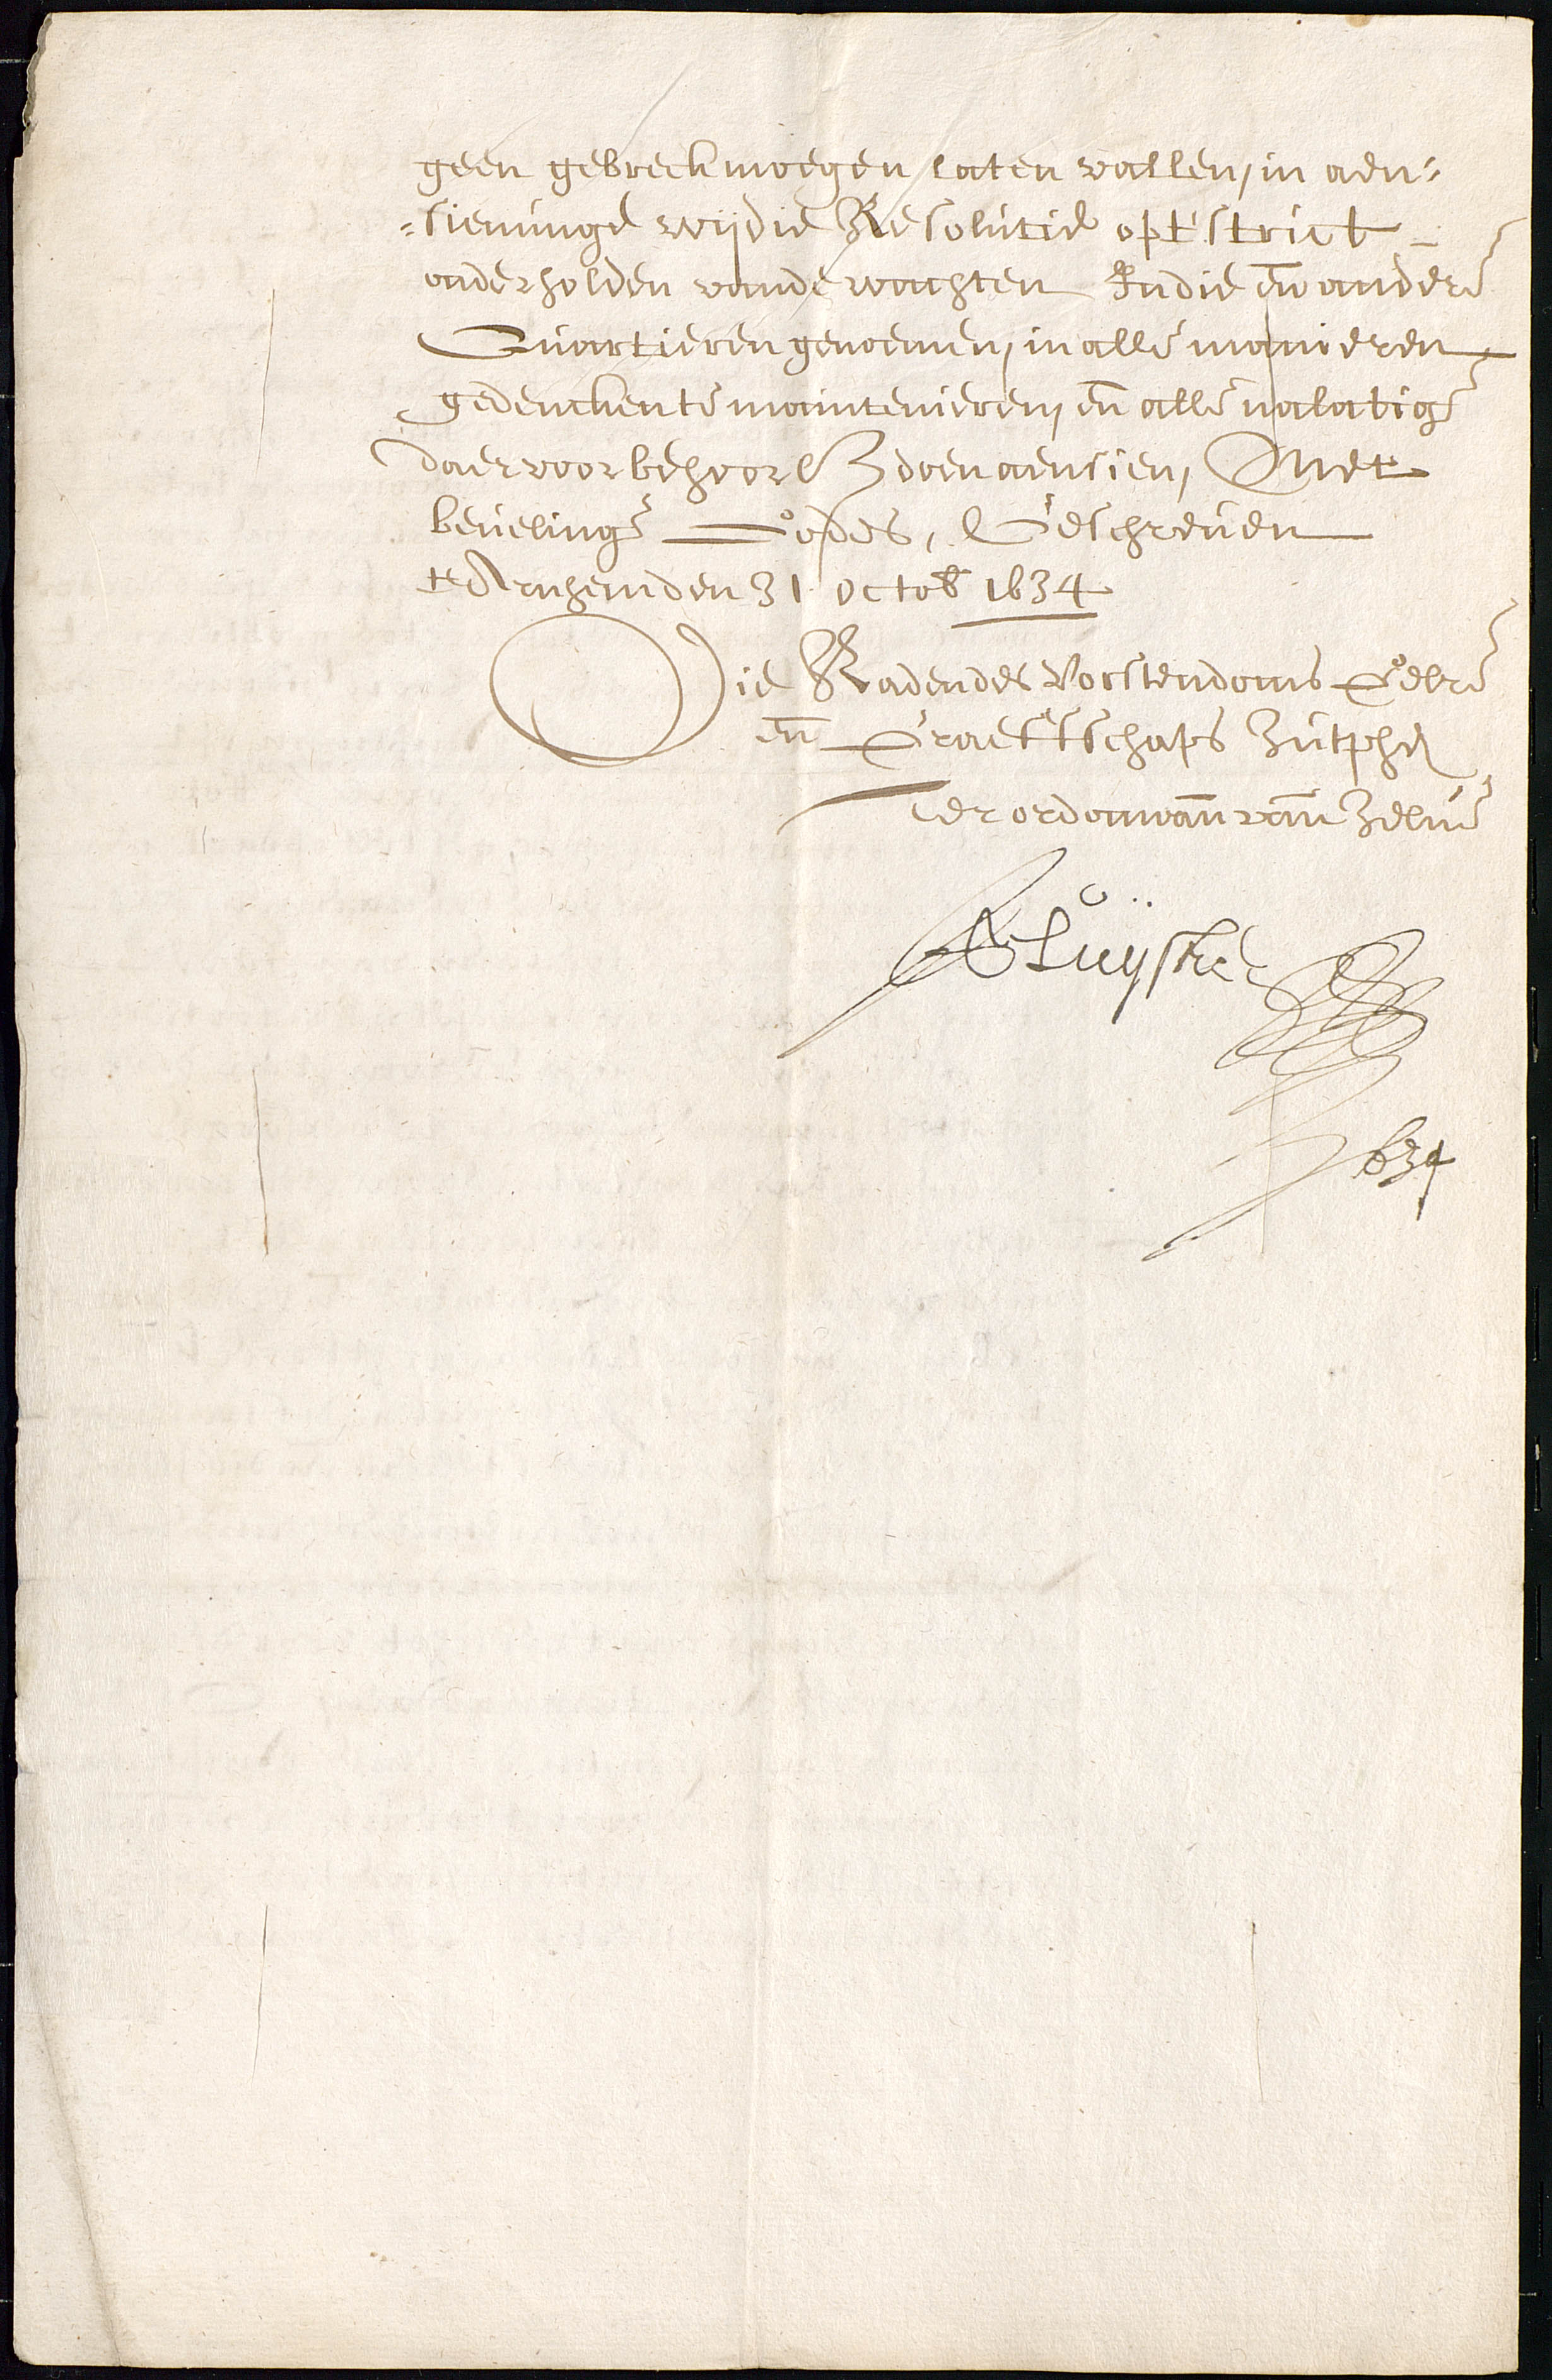 geen gebreck moegen laten vallen, in aen-
-sieninge wij die Resolutie opt strict
onderholden vande wachten In die en andere
Quartieren genoemen, in alle manieren
gedencken te maintenieren, en alle nalatige
daer voor behoorl doen aensien, Met
bevelinge Godes, Geschreven
t Arnhem den 31 Octob 1634
Die Raden des Vorstendoms Gelre
en Graeftschaps Zutphen
Ter ordonnan van Zelve
Sluijsken
1634